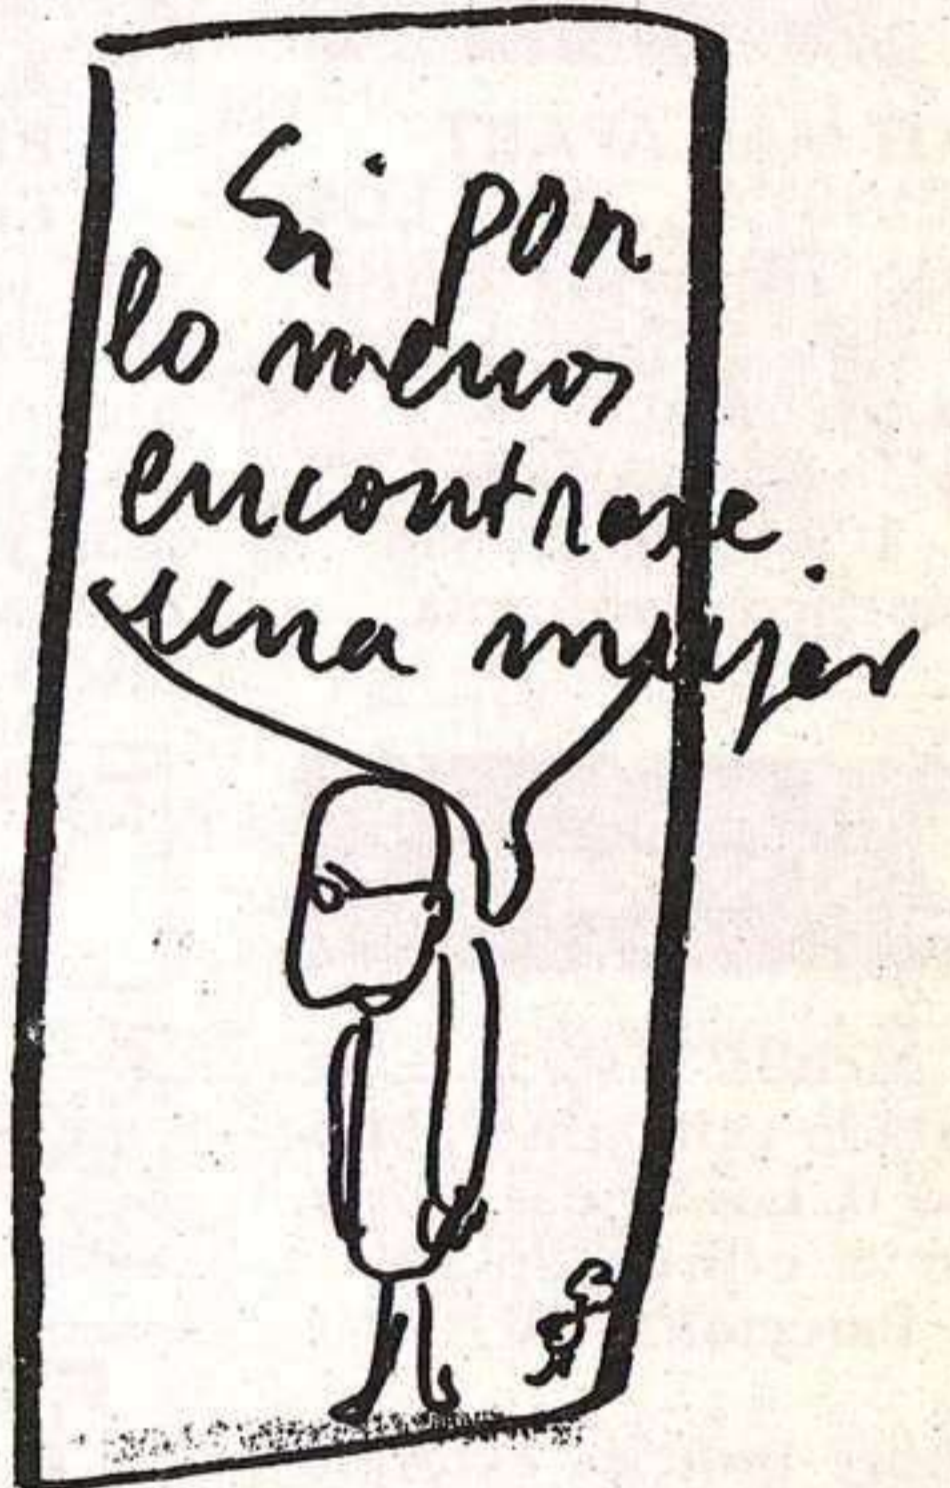 Si por
lo menos
encontrase
una mujer